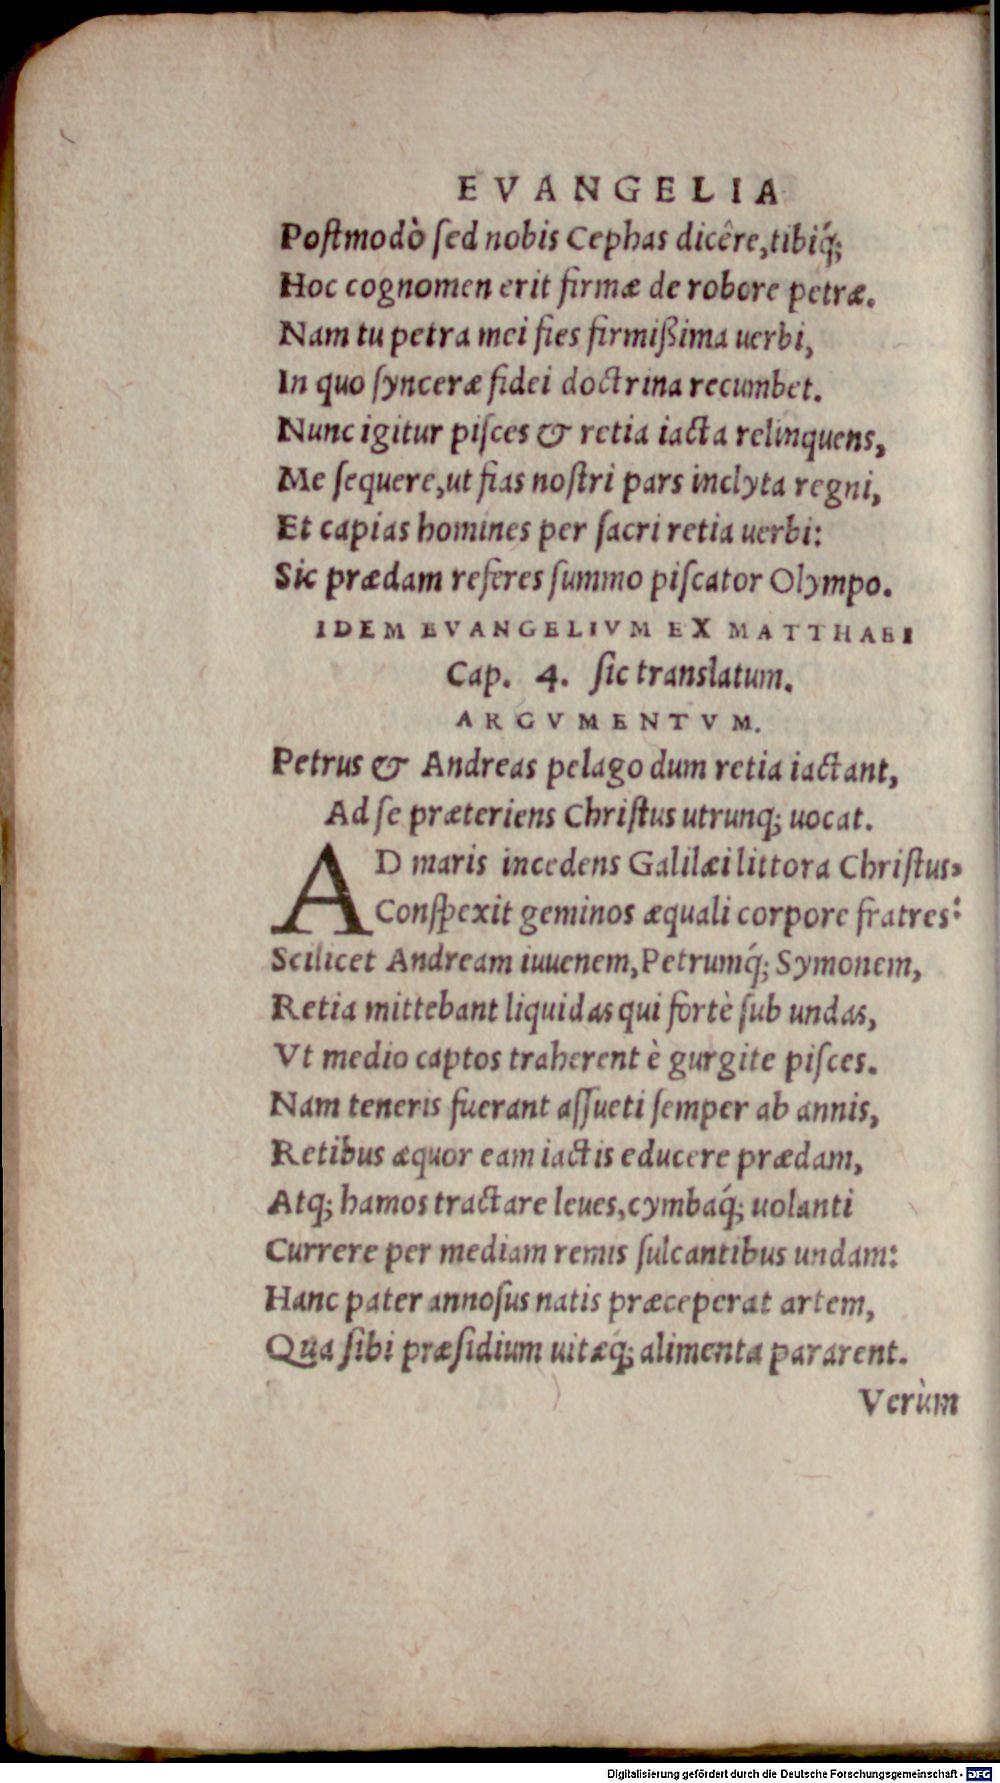 EVANGELIA
Postmodò ſed nobis Cephas dicêre, tibiq́;
Hoc cognomen erit firmæ de robore petræ.
Nam tu petra mei fies firmißima uerbi,
In quo ſynceræ fidei doctrina recumbet.
Nunc igitur piſces & retia iacta relinquens,
Me ſequere, ut fias noſtri pars inclyta regni,
Et capias homines per ſacri retia uerbi:
Sic prædam referes ſummo piſcator Olympo.
IDEM EVANGELIVM EX MATTHAEI
Cap. 4. ſic translatum.
ARGVMENTVM.
Petrus & Andreas pelago dum retia iactant,
Ad ſe præteriens Chriſtus utrunq; uocat.
AD maris incedens Galilæi littora Chriſtus,
Conſpexit geminos æquali corpore fratres:
Scilicet Andream iuuenem, Petrumq́; Symonem,
Retia mittebant liquidas qui fortè ſub undas,
Vt medio captos traherent è gurgite piſces.
Nam teneris fuerant aſſueti ſemper ab annis,
Retibus æquor eam iactis educere prædam,
Atq; hamos tractare leues, cymbaq́; uolanti
Currere per mediam remis ſulcantibus undam:
Hanc pater annoſus natis præceperat artem,
Qua ſibi præſidium uitæq́; alimenta pararent.
Verùm
Digitalisierung gefördert durch die Deutsche Forschungsgemeinschaft - DFG